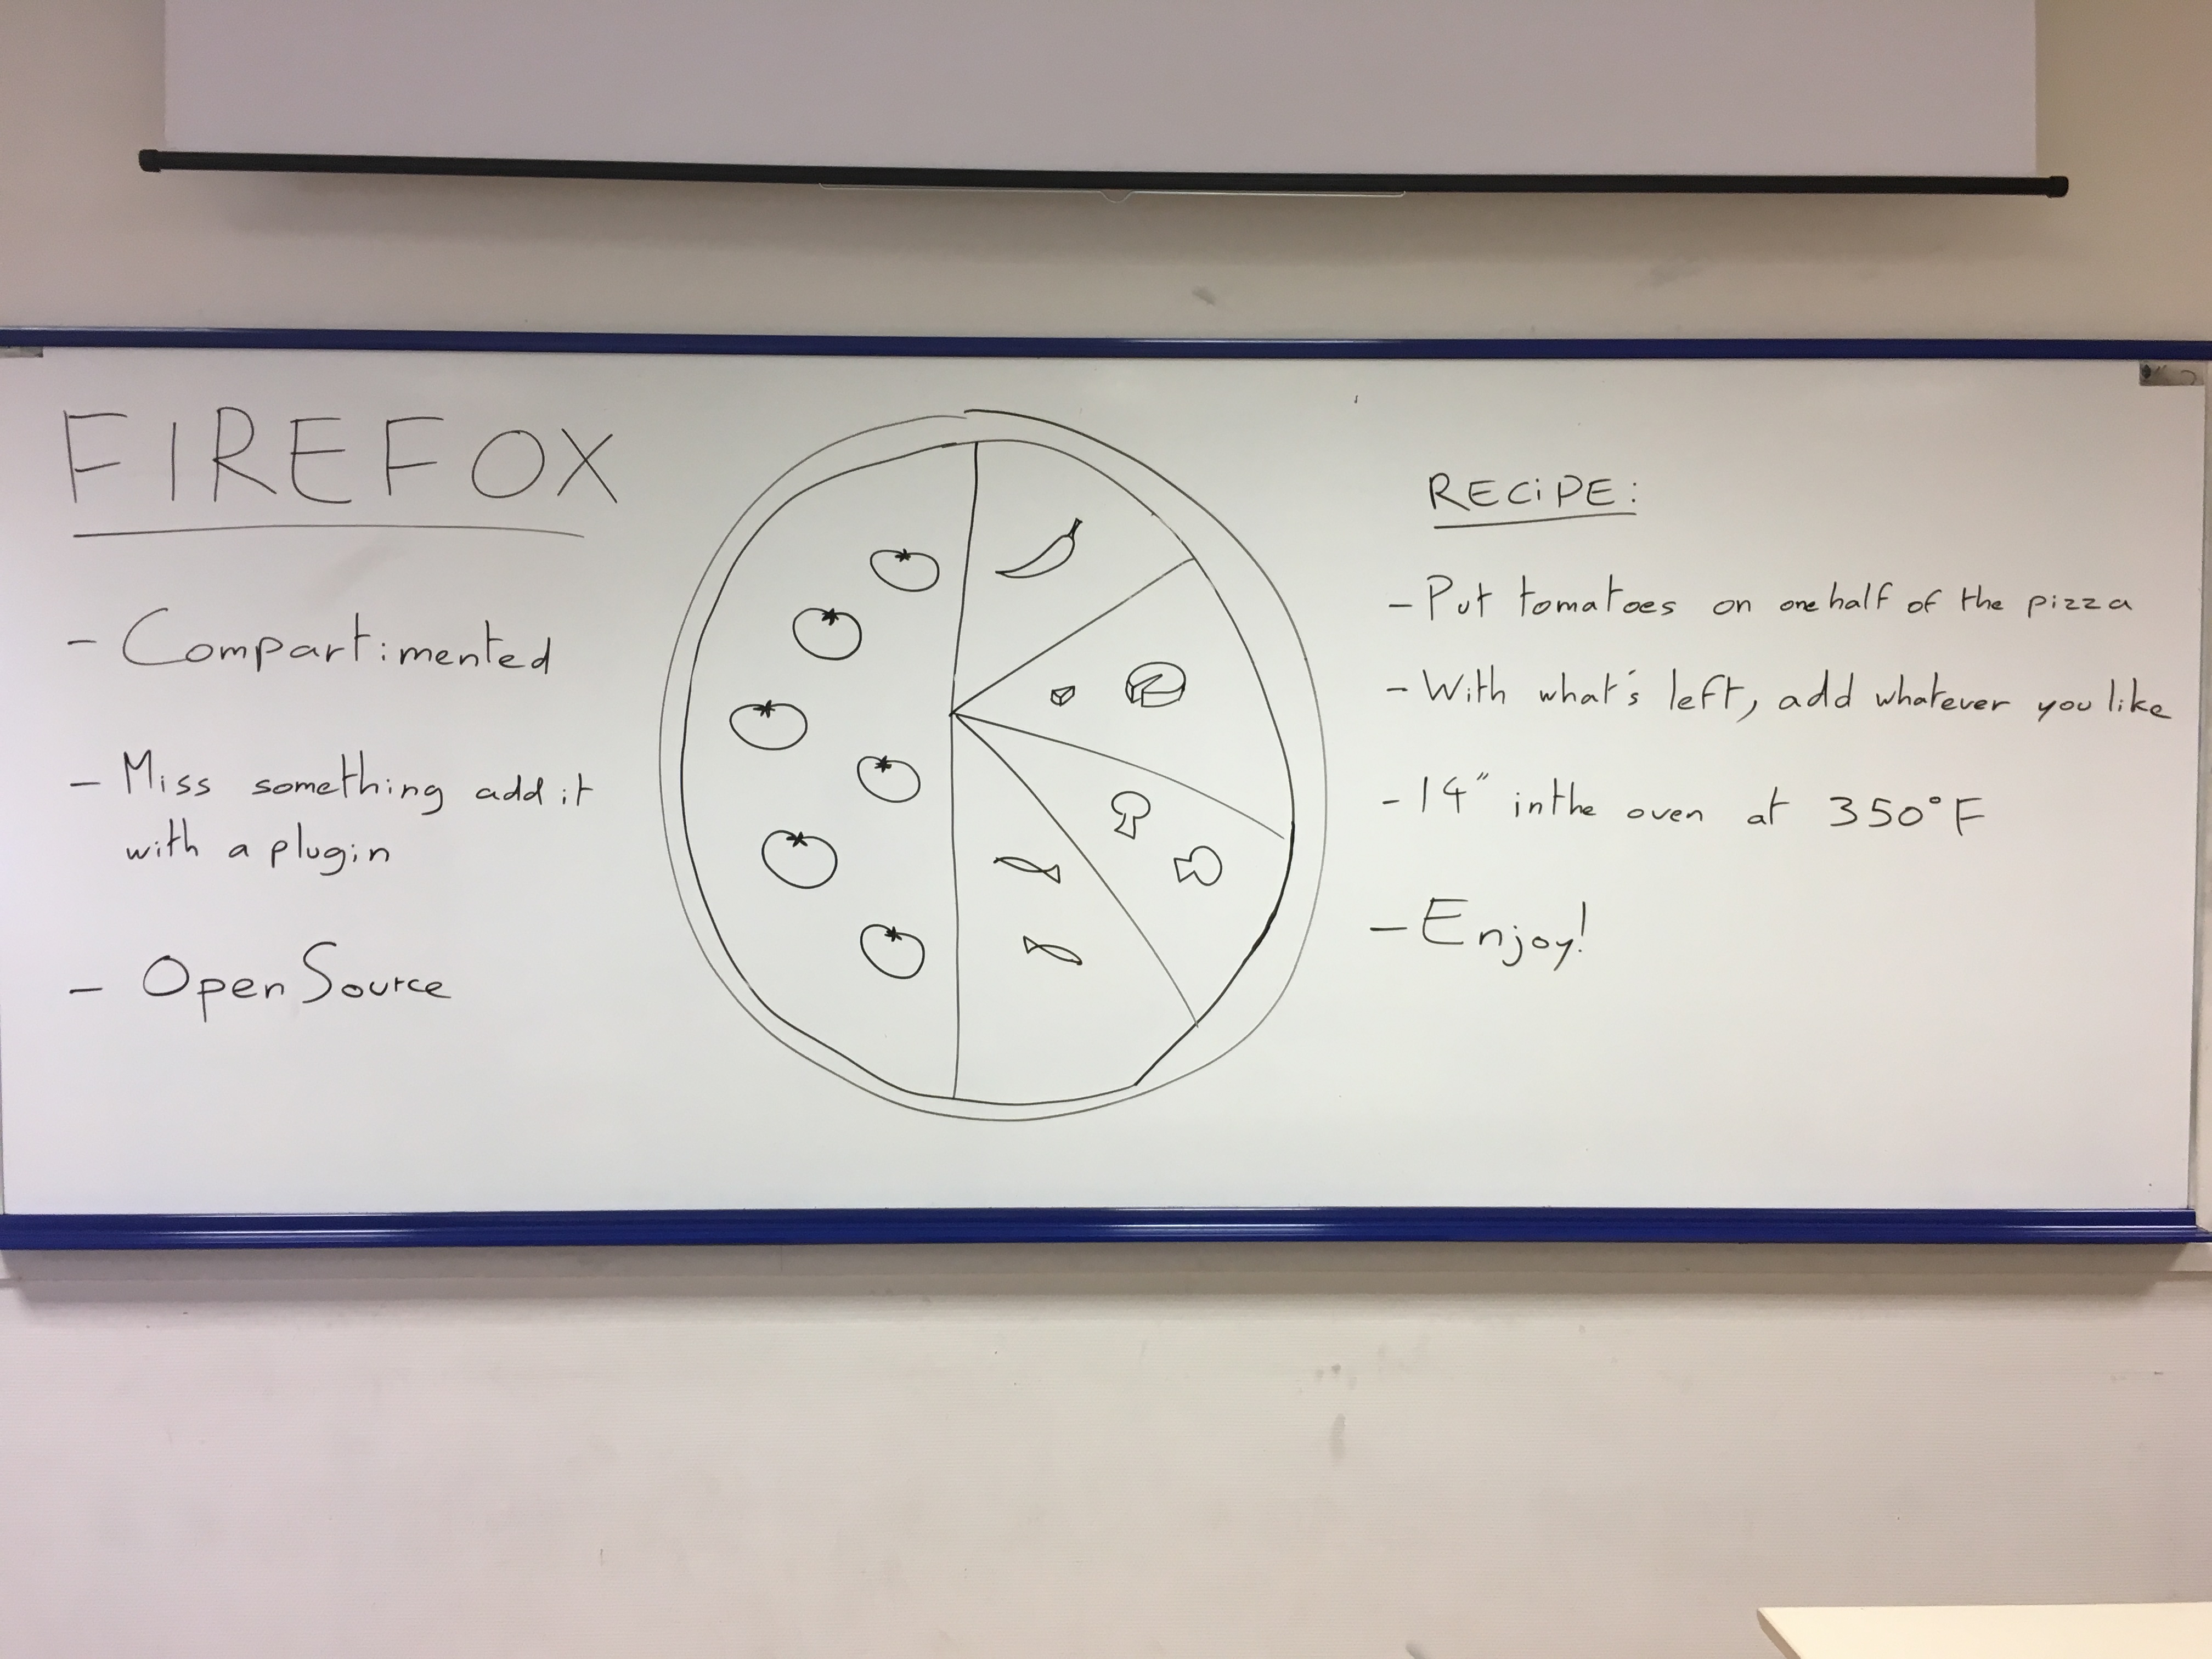 FIREFOX
- Compartimented
- Miss something add it
with a plugin
- Open Source
RECiPE:
- Put tomatoes on one half of the pizza
- With what's left, add whatever you like
- 14" in the oven at 350°F
- Enjoy!